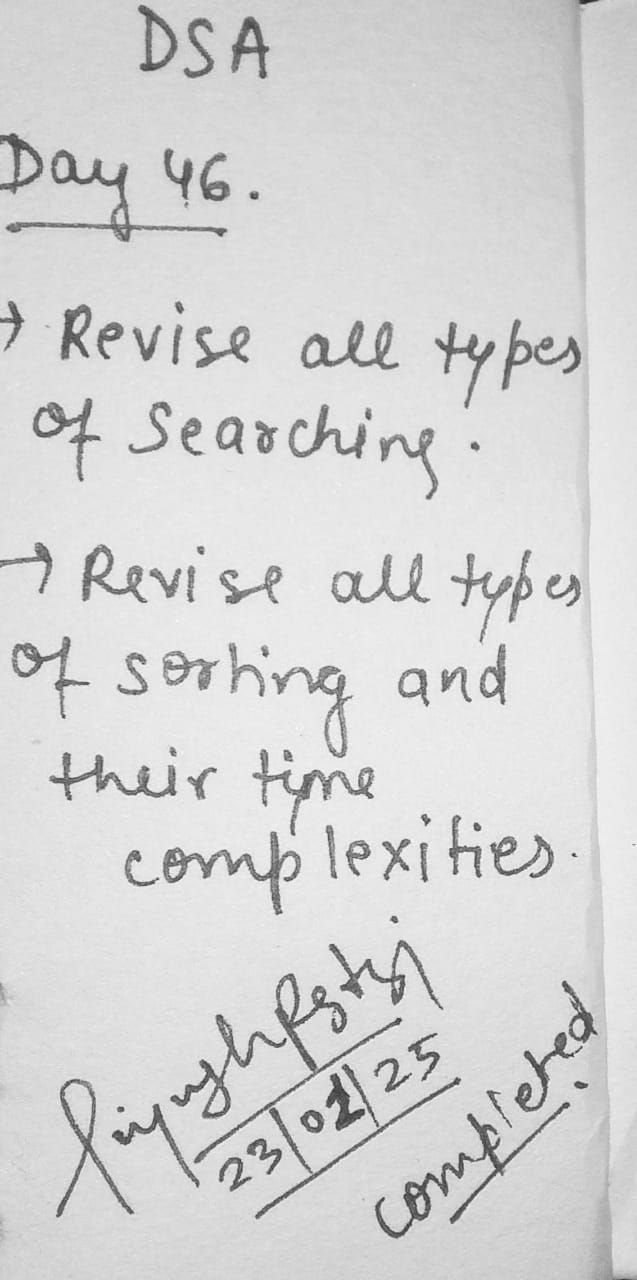 DSA
Day 46.
→ Revise all types
of Searching.
→ Revise all types
of sorting and
their time
complexities.
23/01/25
completed.